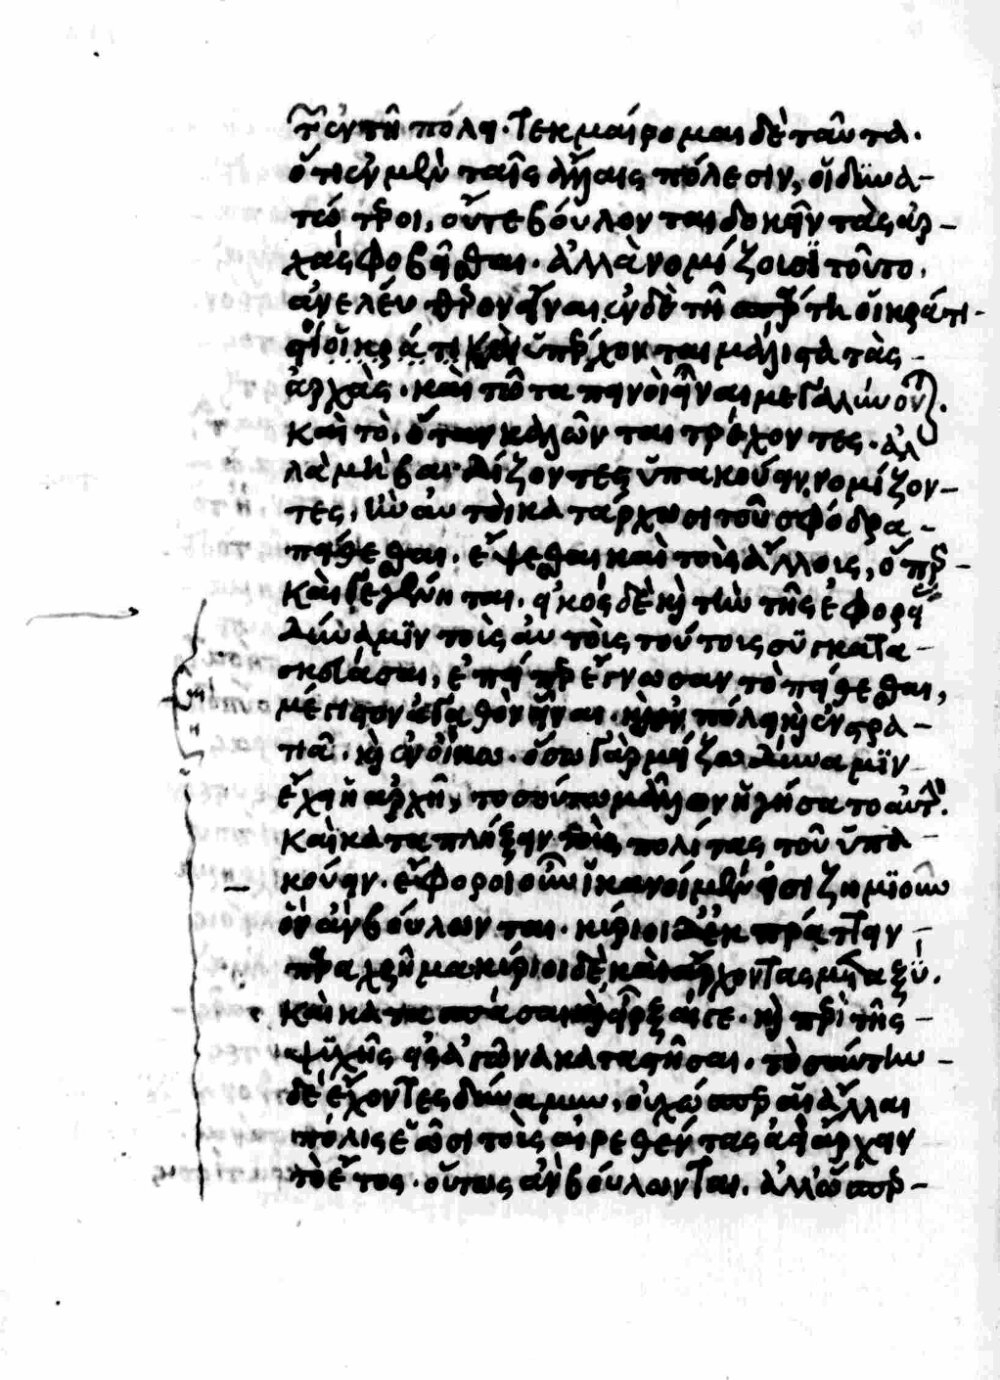 τ ἐν τῆ πόλει. Τεκμαίρομαι δὲ ταῦτα.
ὅτι ἐν μὲν ταῖς ἄλλαις πόλεσιν, οἱ δυνα-
τώτεροι, οὔτε βούλονται δοκεῖν τὰς ἀρ-
χὰς φοβεῖσθαι. ἀλλὰ νομίζουσι τοῦτο.
ἀνελεύθερον εἶναι ἐν δὲ τῆ σπάρτη οἱ κράτι-
οἱ κράτι καὶ ὑπέρχονται μάλιστα τὰς -
ἀρχὰς. καὶ τῶ ταπεινοὶ εἶναι μεγαλύνον
καὶ τὸ. ὅταν καλῶνται τρέχοντες. ἀλ
λὰ μὴ βαδίζοντες ὑπακούειν, νομίζον-
τες, ἢν αὐτοὶ κατάρχωσι τοῦ σφόδρα -
πείθεσθαι. ἕψεσθαι καὶ τοὺς ἄλλους, ὅπερ -
καὶ γεγένηται. εἰκὸς δὲ κὴ τὴν τῆς ἐφορεί
δύναμιν τοὺς αὐτοὺς τούτους συγκατα-
σκευάσαι, ἐπείπερ ἔγνωσαν τὸ πείθεσθαι,
μέγιστον ἀγαθὸν εἶναι. κὴ ἐν πόλει κὴ ἐν στρα-
τιᾶ. κὴ ἐν οἴκω. ὅσω γὰρ μείζω δύναμιν
ἔχει ἡ ἀρχὴ, τοσούτω μᾶλλον ἡγήσατο αὐτ.
καὶ καταπλήξειν τοὺς πολίτας τοῦ ὑπα-
κούειν. ἔφοροι οὖν ἱκανοὶ μέν εἰσι ζημιοῦν
ὃν ἂν βούλωνται. κύριοι δ' ἐκπράττειν -
παραχρῆμα κύριοι δὲ καὶ ἄρχοντας μεταξὺ.
καὶ καταπαῦσαι καὶ εἷρξαί γε. κὴ περὶ τῆς -
ψυχῆς εἰς ἀγῶνα καταστῆσαι. τοσαύτην -
δὲ ἔχοντες δύναμιν, οὐχ ὥσπερ αἱ ἄλλαι
πόλεις ἐῶσι τοὺς αἱρεθέντας ἀεὶ ἄρχειν
τὸ ἔτος. ὅπως ἂν βούλωνται. ἀλλ' ὥσπερ -